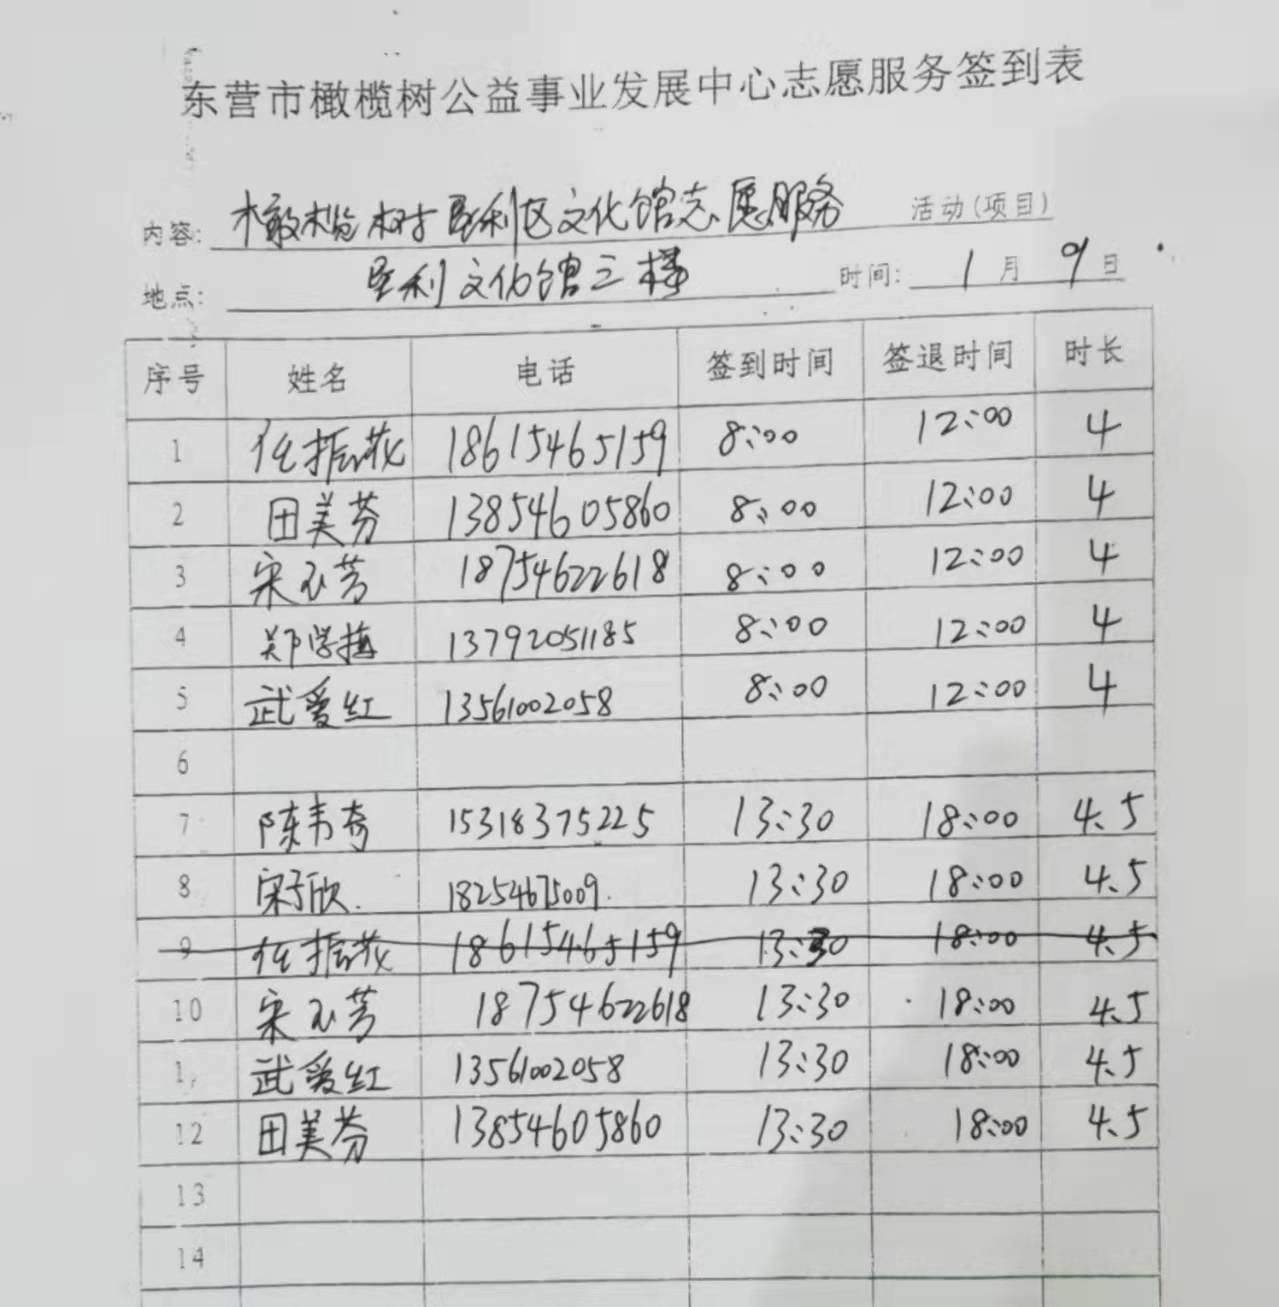 东营市橄榄树公益事业发展中心志愿服务签到表
内容: 橄榄树垦利区文化馆志愿服务 活动(项目)
地点: 垦利文化馆三楼 时间: 1月9日
序号 姓名 电话 签到时间 签退时间 时长
1 任振花 18615465159 8:00 12:00 4
2 田美芬 13854605860 8:00 12:00 4
3 宋玉芳 18754622618 8:00 12:00 4
4 郑学梅 13792051185 8:00 12:00 4
5 武爱红 13561002058 8:00 12:00 4
6
7 陈韦奇 15318375225 13:30 18:00 4.5
8 宋子欣 18254675009. 13:30 18:00 4.5
9 任振花 18615465159 13:30 18:00 4.5
10 宋玉芳 18754622618 13:30 18:00 4.5
1 武爱红 13561002058 13:30 18:00 4.5
12 田美芬 13854605860 13:30 18:00 4.5
13
14